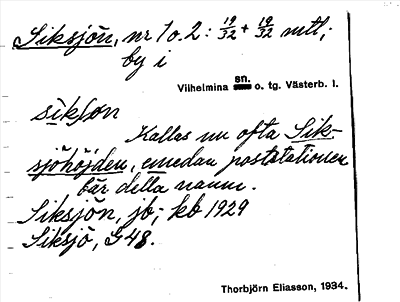 Siksjön, nr 1 o. 2: 19/32 + 19/32 mtl;
by i
Vilhelmina sn. o. tg. Västerb. l.
sìkʃøn
Kallas nu ofta Sik-
sjöhöjden, emedan poststationen
bär detta namn.
Siksjön, jb; kb 1929
Siksjö, G48.
Thorbjörn Eliasson, 1934.